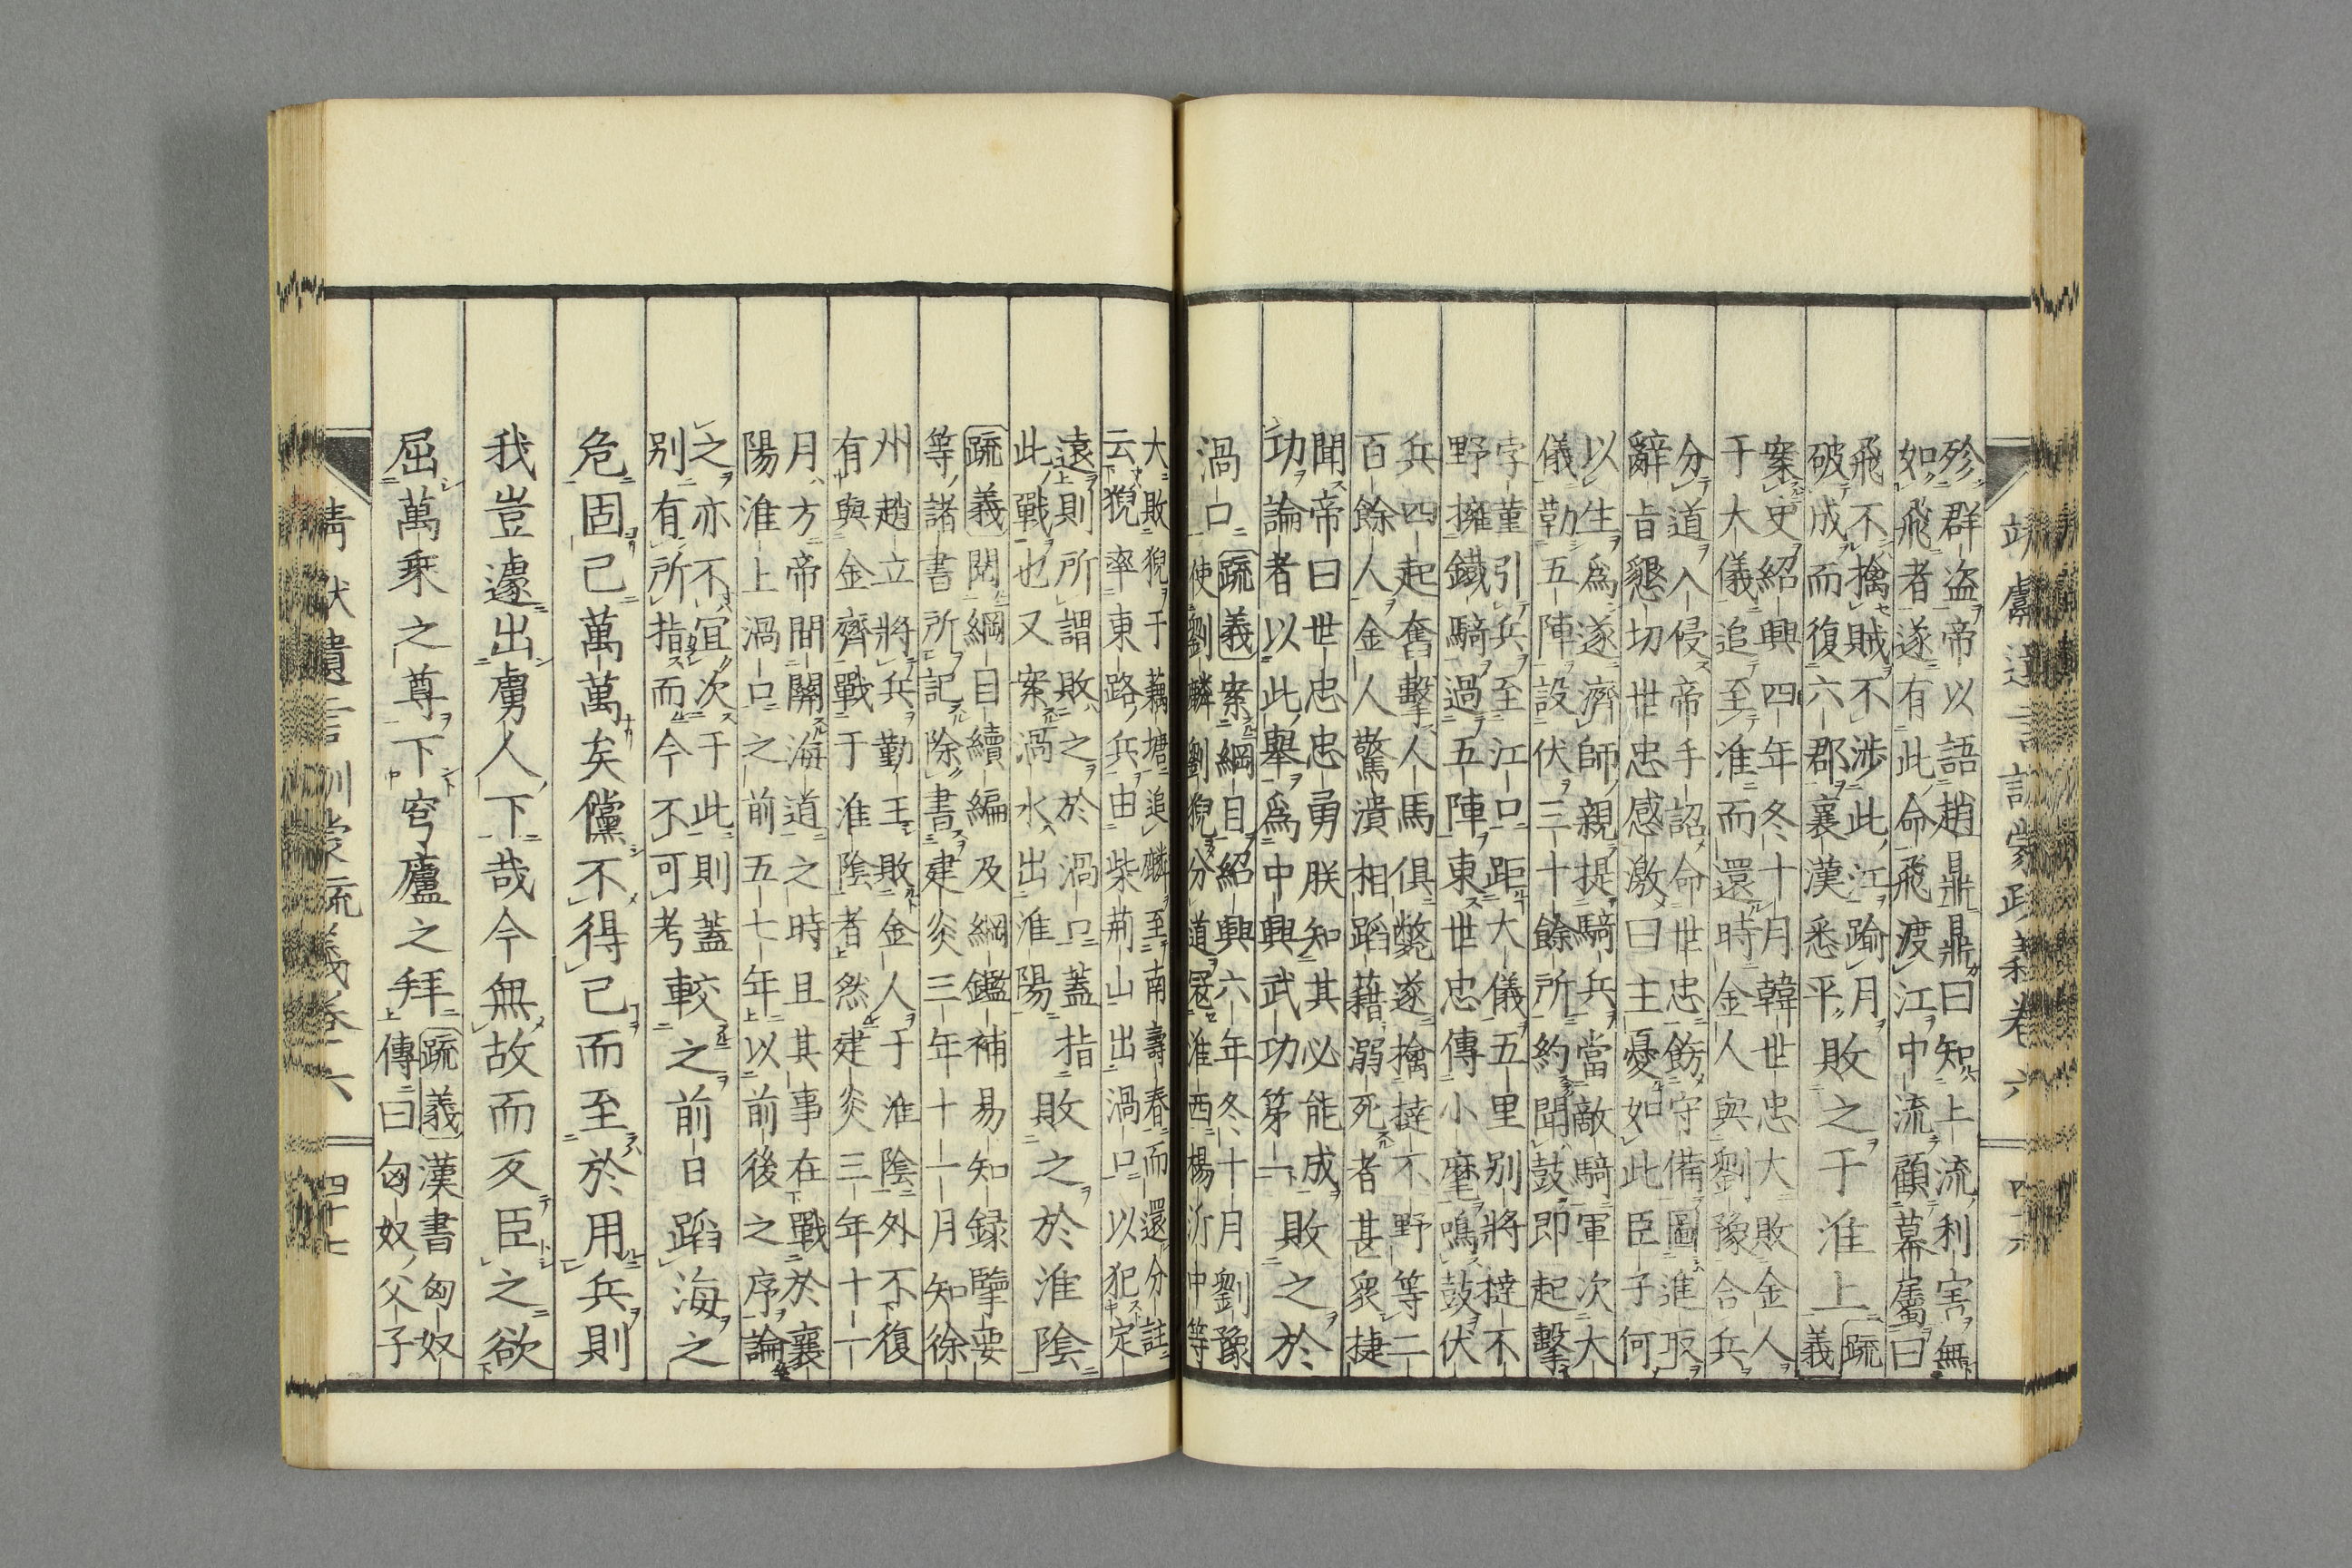 殄群盜帝以語趙鼎鼎曰知上流利害無
如飛者遂有此命飛渡江中流顧幕屬曰
飛不擒賊不涉此江踰月敗之于淮上疏
破成而復六郡襄漢悉平義
案史紹興四年冬十月韓世忠大敗金人
于大儀追至淮而還時金人與劉豫合兵
分道入侵帝手詔命世忠飭守備圖進取
辭旨懇切世忠感激曰主憂如此臣子何
以生爲遂濟師親提騎兵當敵騎軍次大
儀勒五陣設伏三十餘所約聞鼓即起擊
孛菫引兵至江口距大儀五里別將撻不
野擁鐵騎過五陣東世忠傳小麾鳴鼓伏
兵四起奮擊人馬俱斃遂擒撻不野等二
百餘人金人驚潰相蹈藉溺死者甚衆捷
聞帝曰世忠忠勇朕知其必能成
功論者以此舉爲中興武功第一敗之於
渦口疏義案綱目紹興六年冬十月劉豫
使劉麟劉猊分道寇淮西楊沂中等
大敗猊于藕塘追麟至南壽春而還分註
云猊率東路兵由柴荊山出渦口以犯定
遠則所謂敗之於渦口蓋指
此戰也又案渦水出淮陽敗之於淮陰
疏義閱綱目續編及綱鑑補易知録擥要
等諸書所記除書建炎三年十一月知徐
州趙立將兵勤王敗金人于淮陰外不復
有與金齊戰于淮陰者然建炎三年十一
月方帝間關海道之時且其事在戰於襄
陽淮上渦口之前五七年以前後之序論
之亦不宜次于此則蓋
別有所指而今不可考較之前日蹈海之
危固已萬萬矣儻不得已而至於用兵則
我豈遽出虜人下哉今無故而反臣之欲
屈萬乘之尊下穹廬之拜疏義漢書匈奴
傳曰匈奴父子
靖獻遺言訓蒙疏義卷六
四十七